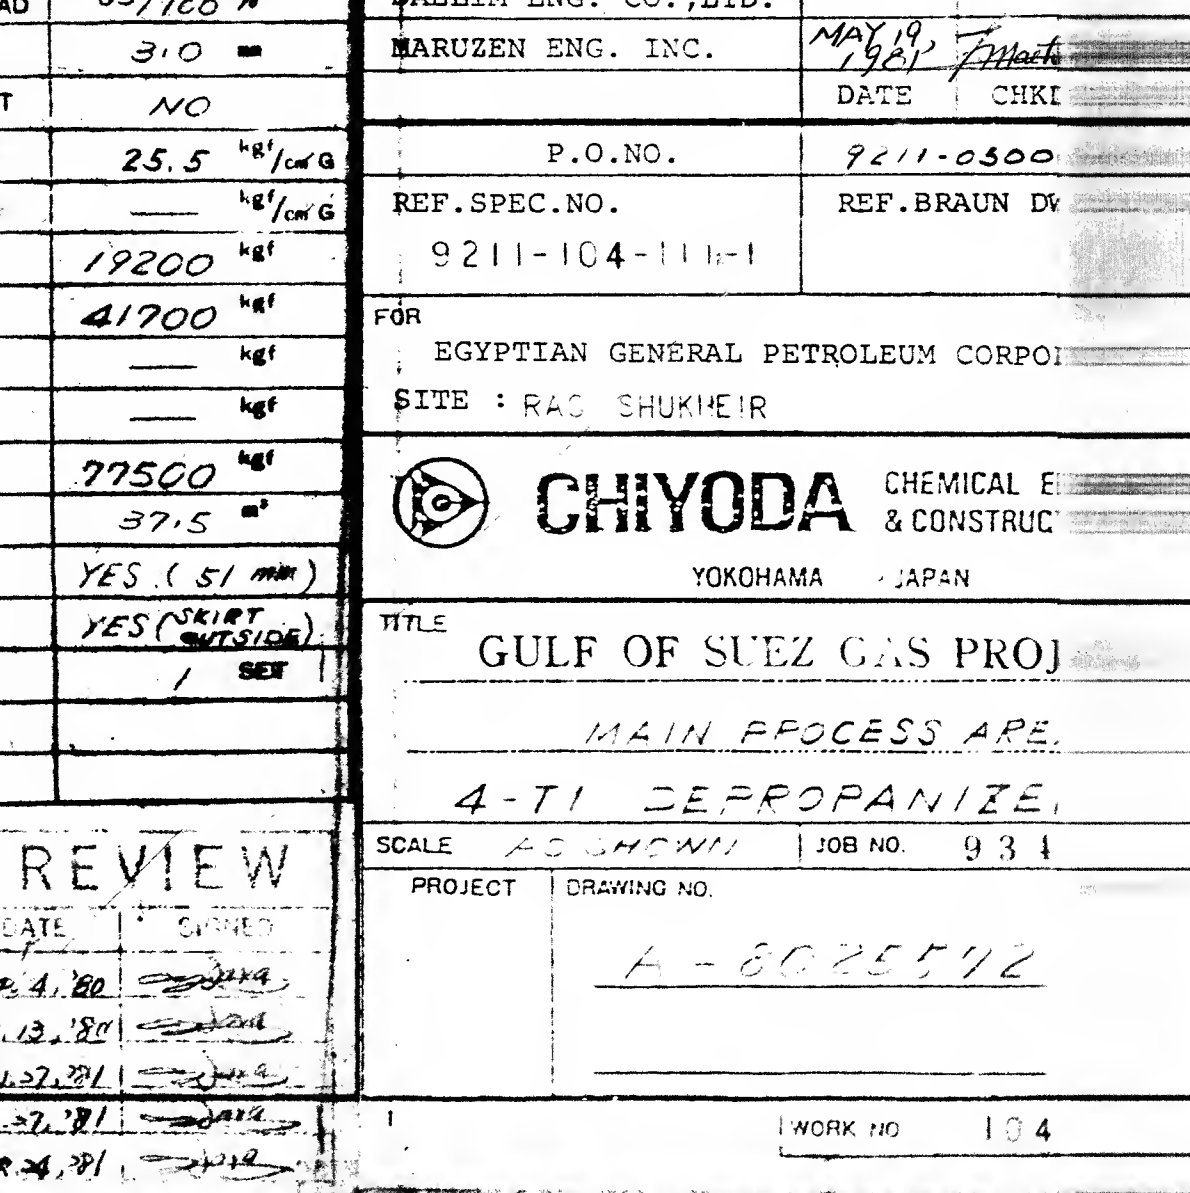 3.0 mm
NO
25.5 kgf/cm²G
— kgf/cm²G
19200 kgf
41700 kgf
— kgf
— kgf
77500 kgf
37.5 m³
YES (51 mm)
YES (SKIRT OUTSIDE)
1 SET
REVIEW
DATE SIGNED
4, '80
13, '80
27, '81
27, '81
24, '81
MARUZEN ENG. INC. MAY 19, 1981
DATE CHKD
P.O.NO. 9211-0300
REF.SPEC.NO. REF.BRAUN DW
9211-104-111-1
FOR
EGYPTIAN GENERAL PETROLEUM CORPO
SITE : RAS SHUKHEIR
CHIYODA CHEMICAL E
& CONSTRUC
YOKOHAMA JAPAN
TITLE
GULF OF SUEZ GAS PROJ
MAIN PROCESS ARE
4-T1 DEPROPANIZE
SCALE AS SHOWN JOB NO. 934
PROJECT DRAWING NO.
A-8025572
WORK NO 104